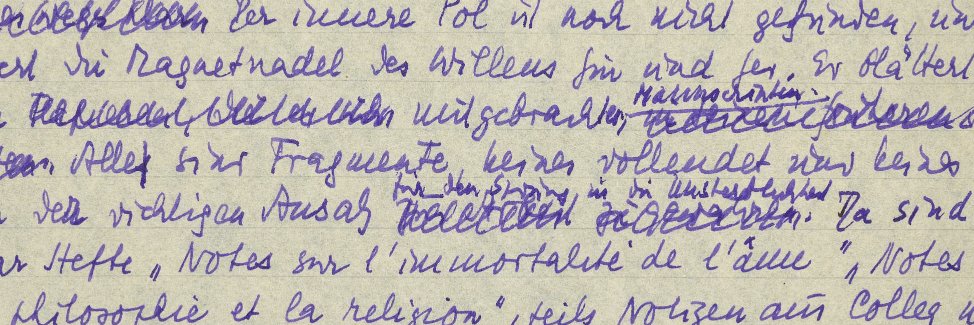 Der innere Pol ist noch nicht gefunden, un
ert die Magnetnadel des Willens hin und her. Er blättert
mitgebrachten Manuscripten.
Alles sind Fragmente, keines vollendet und keines
für den Sprung in die Unsterblichkeit
den richtigen Ansatz . Da sind
Hefte „Notes sur l'immortalité de l'âme", „Notes
philosophie et la religion", teils Notizen aus Colleg